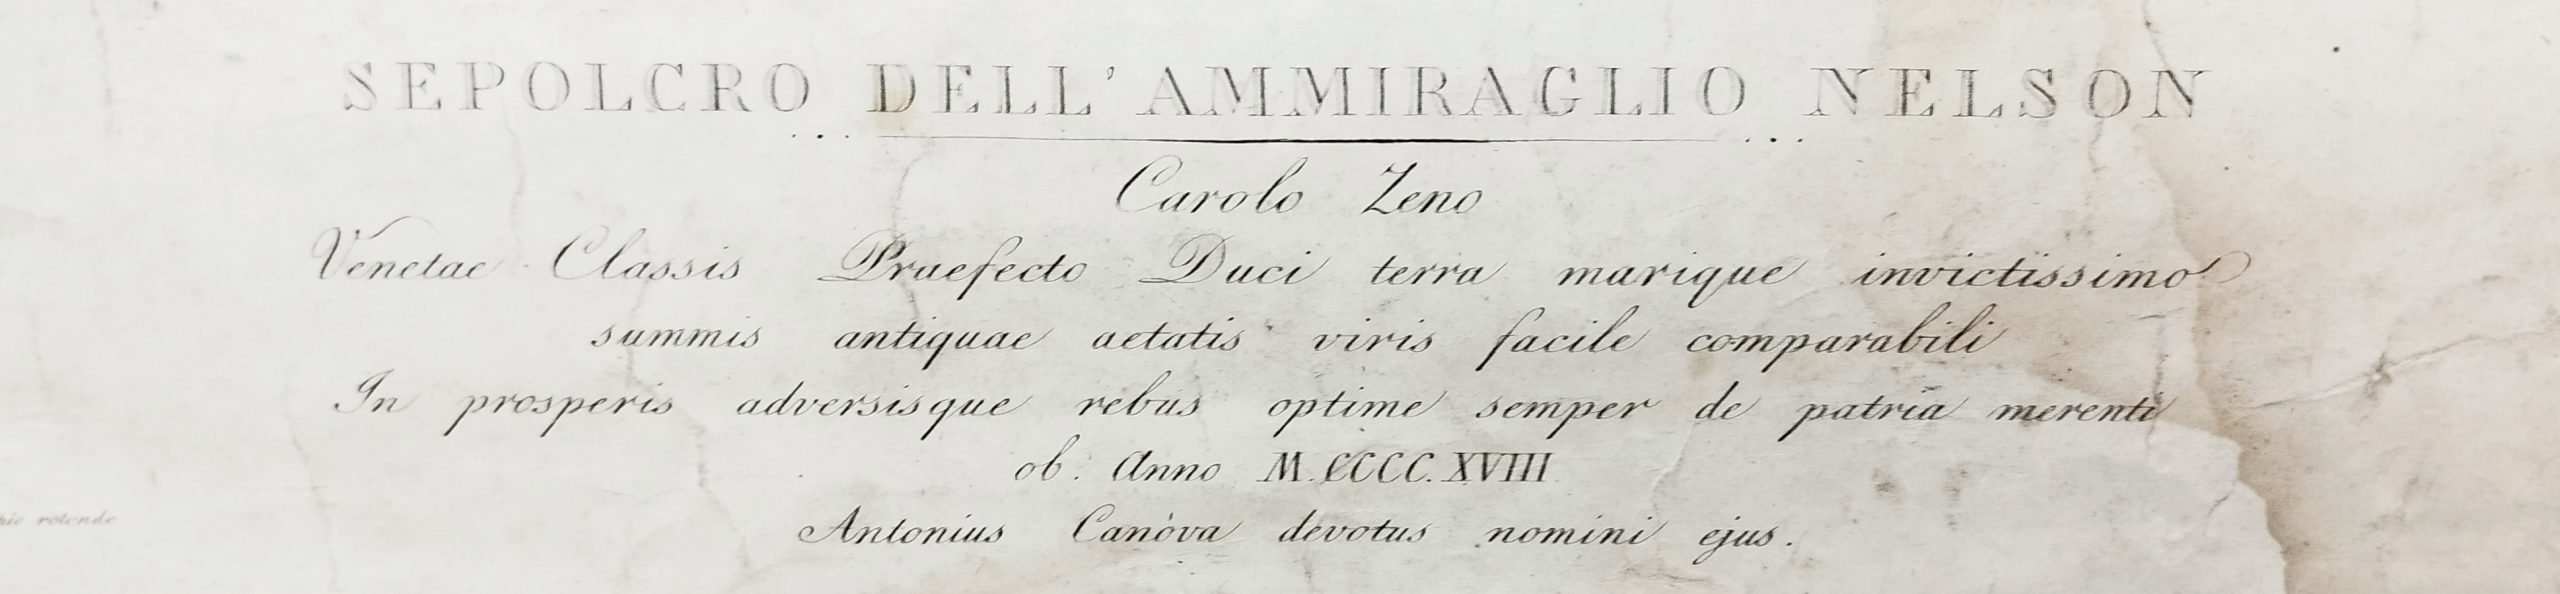 SEPOLCRO DELL'AMMIRAGLIO NELSON
Carolo Zeno
Venetae Classis Praefecto Duci terra marique invictissimo
summis antiquae aetatis viris facile comparabili
In prosperis adversisque rebus optime semper de patria merenti
ob: Anno M.CCCC.XVIII
Antonius Canòva devotus nomini ejus.
rotondo